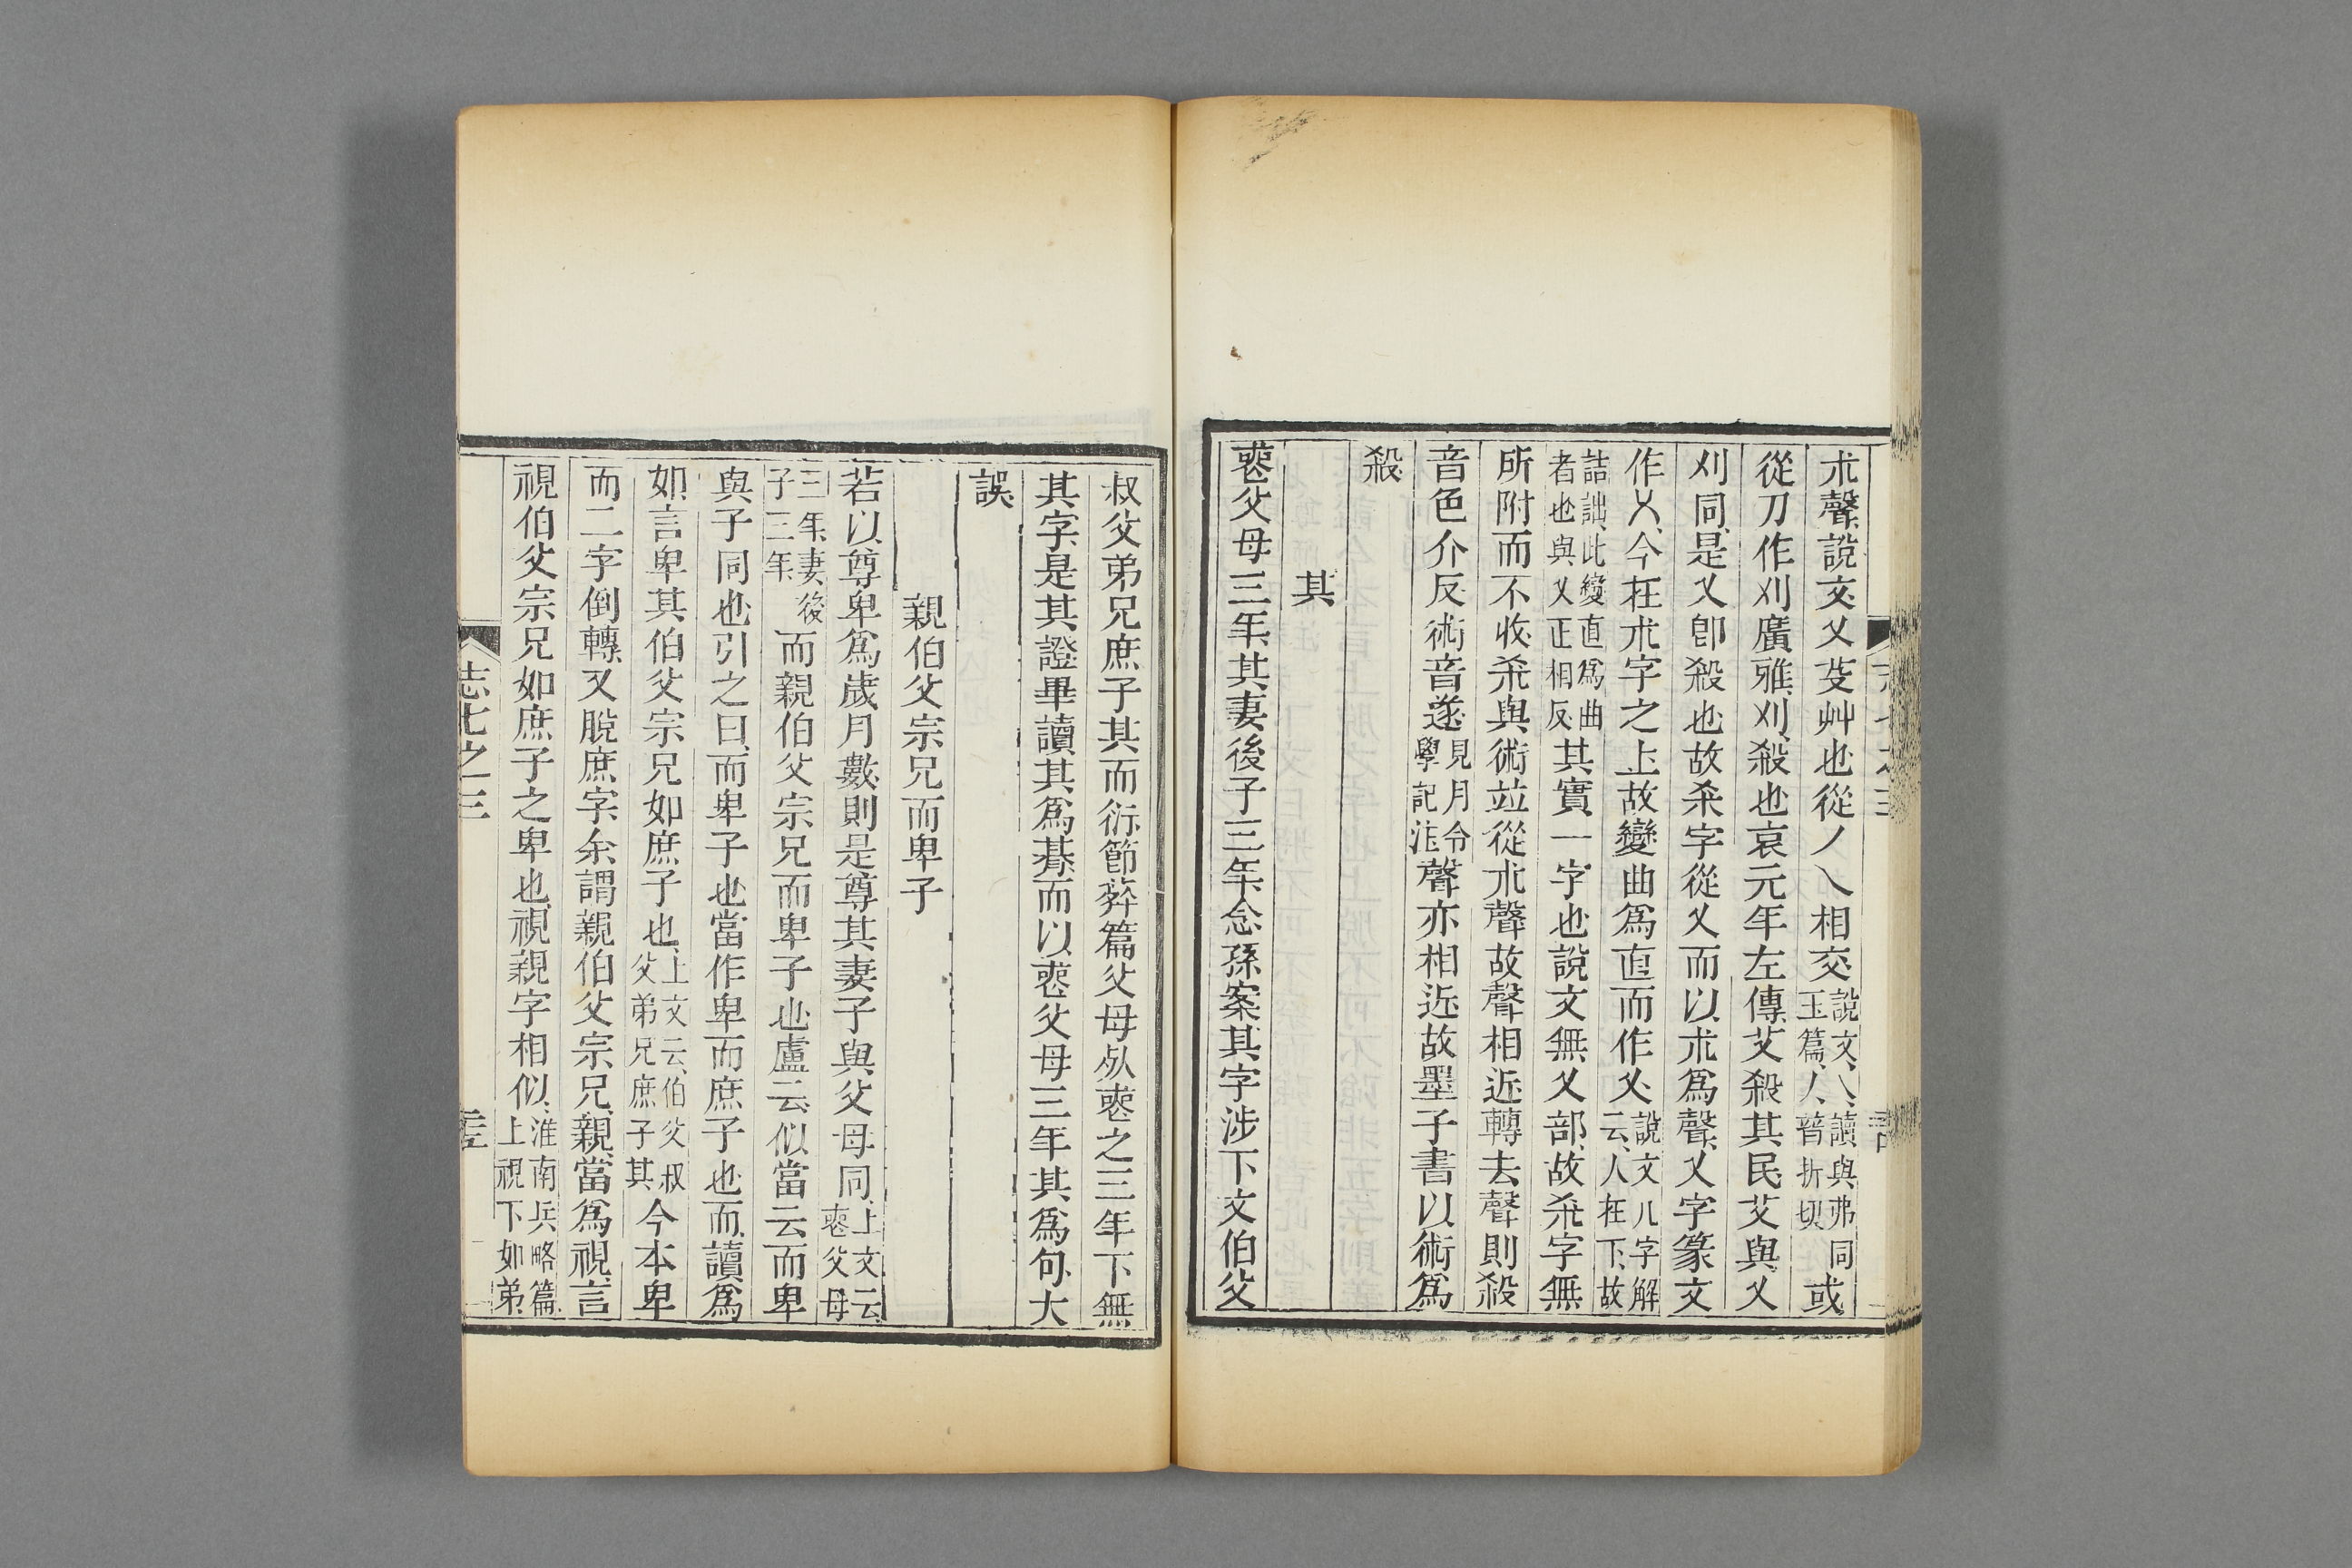 朮聲說文乂芟艸也從丿乀相交說文乀讀與弗同玉篇乀普折切或
從刀作刈廣雅刈殺也哀元年左傳艾殺其民艾與乂
刈同是乂卽殺也故杀字從乂而以朮爲聲乂字篆文
作乂今在朮字之上故變曲爲直而作乂說文儿字解云人在下故
詰詘此變直爲曲者也與乂正相反其實一字也說文無乂部故杀字無
所附而不收杀與術竝從朮聲故聲相近轉去聲則殺
音色介反術音遂見月令學記注聲亦相近故墨子書以術爲
殺
其
喪父母三年其妻後子三年念孫案其字涉下文伯父
叔父弟兄庶子其而衍節葬篇父母死喪之三年下無
其字是其證畢讀其爲朞而以喪父母三年其爲句大
誤
親伯父宗兄而卑子
若以尊卑爲歲月數則是尊其妻子與父母同上文云喪父母
三年妻後子三年而親伯父宗兄而卑子也盧云似當云而卑
與子同也引之曰而卑子也當作卑而庶子也而讀爲
如言卑其伯父宗兄如庶子也上文云伯父叔父弟兄庶子其今本卑
而二字倒轉又脫庶字余謂親伯父宗兄親當爲視言
視伯父宗兄如庶子之卑也視親字相似淮南兵略篇上視下如弟
志七之三